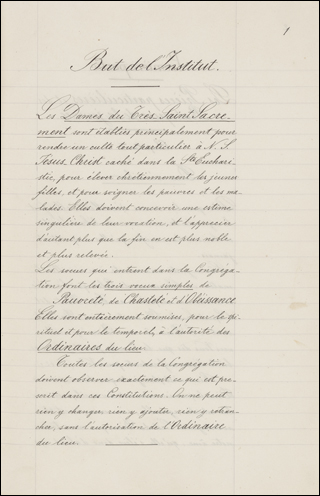 1
But de l'Institut.
Les Dames du Très Saint Sacre-
ment sont établies principalement pour
rendre un culte tout particulier à N. S.
Jésus-Christ caché dans la Ste Euchari-
stie, pour élever chrétiennement les jeunes
filles, et pour soigner les pauvres et les ma-
lades. Elles doivent concevoir une estime
singulière de leur vocation, et l'apprécier
d'autant plus que la fin en est plus noble
et plus relevée.
Les soeurs qui entrent dans la Congréga-
tion font les trois voeux simples de
Pauvreté, de Chasteté et d'Obéissance.
Elles sont entièrement soumises, pour le spi-
rituel et pour le temporel, à l'autorité des
Ordinaires du lieu.
Toutes les soeurs de la Congrégation
doivent observer exactement ce qui est pre-
scrit dans ces Constitutions. On ne peut
rien y changer, rien y ajouter, rien y retran-
cher, sans l'autorisation de l'Ordinaire
du lieu.